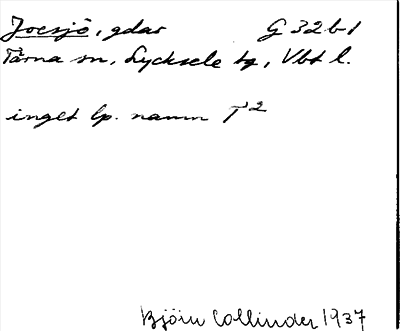 Joesjö, gdar G 32 b 1
Tärna sn, Lycksele tg, Vbt l.
inget lp. namn T²
Björn Collinder 1937